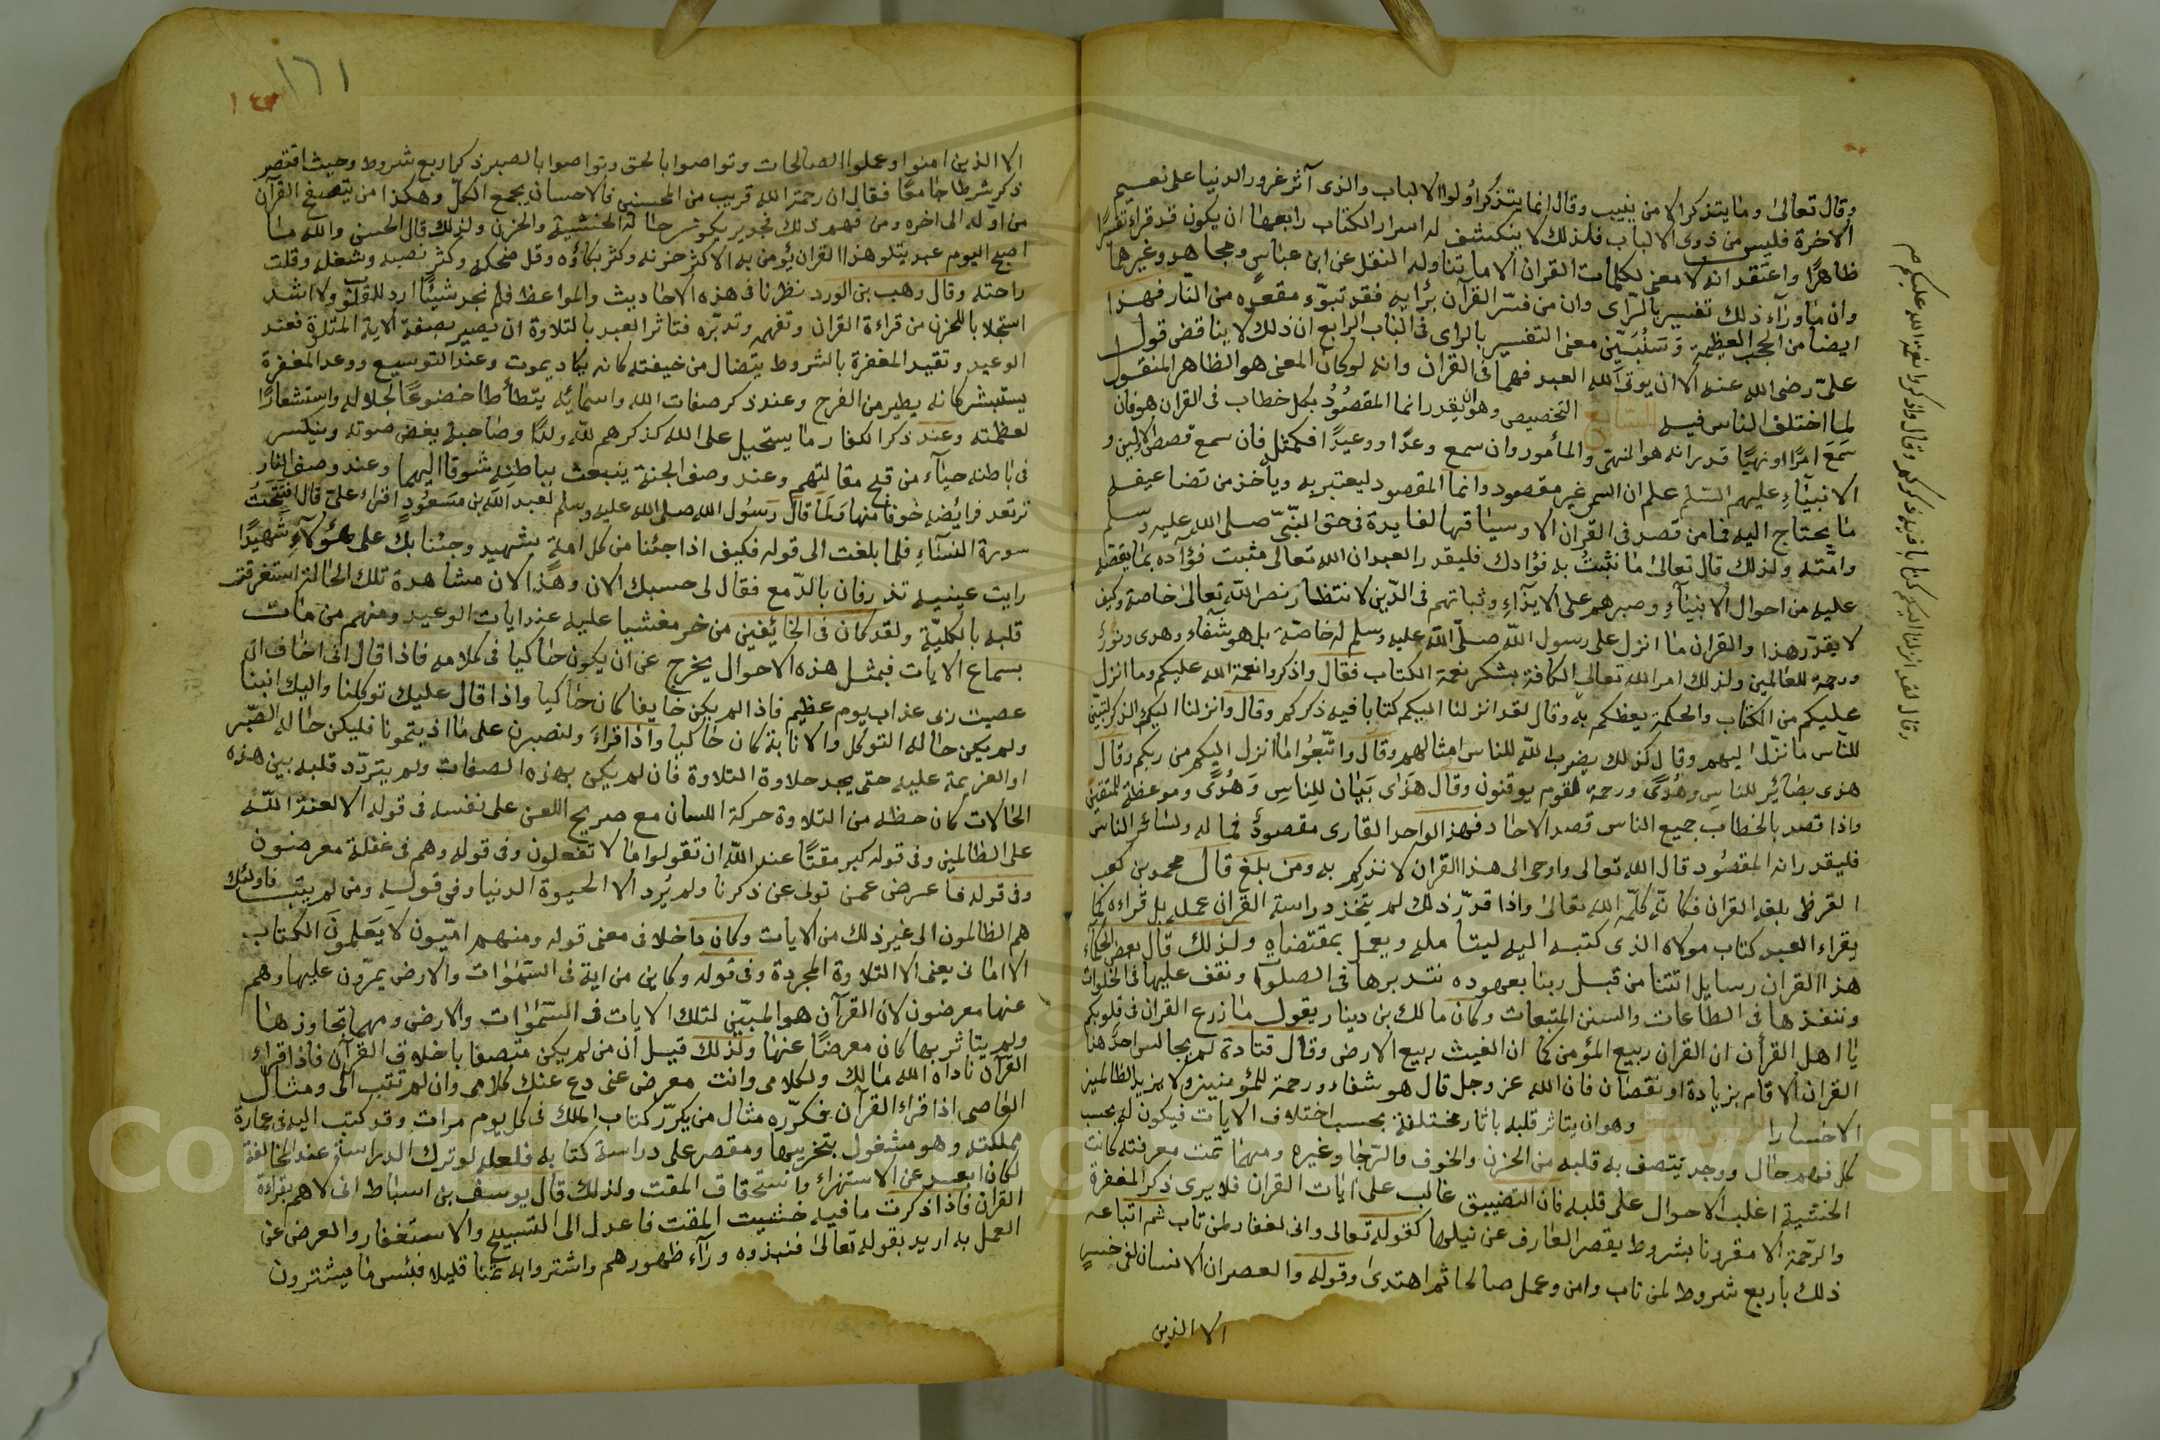 وقال تعالى وما يتذكر الا من ينيب وقال انما يتذكر اولوا الالباب والذى آثر غرور الدنيا على نعيم
الاخرة فليس من ذوى الالباب فلذلك لا ينكشف له اسرار الكتاب رابعها ان يكون قد قراء تفسيرا
ظاهرا واعتقد انه لا معنى لكلمات القران الا ما تناوله النقل عن ابن عباس ومجاهد وغيرهما
وان ما وراء ذلك تفسير بالراى وان من فسر القرآن برايه فقد تبوء مقعده من النار فهذا
ايضا من الحجب العظيمة وسنبين معنى التفسير بالراى فى الباب الرابع ان ذلك لا يناقض قول
على رضى الله عنه الا ان يوتى الله العبد فهما فى القران وانه لو كان المعنى هو الظاهر المنقول
لما اختلف الناس فيه السابع التخصيص وهو ان يقدر انما المقصود بكل خطاب فى القران هو فان
سمع امرا او نهيا قدر انه هو المنهى والمأمور وان سمع وعدا او وعيدا فكمثل فان سمع قصص الاولين و
الانبياء عليهم السلم علم ان السمر غير مقصود وانما المقصود ليعتبر به وياخذ من تضاعيفه
ما يحتاج اليه فما من قصد فى القران الا وسياقها لفايدة فى حق النبى صلى الله عليه وسلم
وامته ولذلك قال تعالى ما نثبت به فؤادك فليقدر العبد ان الله تعالى مثبت فؤاده بما يقصه
عليه من احوال الانبياء وصبرهم على الايذاء وثباتهم فى الدين لانتظار نصر الله تعالى خاصة وكيف
لا يقدر هذا والقران ما انزل على رسول الله صلى الله عليه وسلم له خاصة بل هو شفاء وهدى ونور
ورحمة للعالمين ولذلك امر الله تعالى الكافة بشكر نعمة الكتاب فقال واذكروا نعمة الله عليكم وما انزل
عليكم من الكتاب والحكمة يعظكم به وقال لقد انزلنا اليكم كتابا فيه ذكركم وقال وانزلنا اليك الذكر لتبين
للناس ما نزل اليهم وقال كذلك يضرب الله للناس امثالهم وقال واتبعوا ما انزل اليكم من ربكم وقال
هذى بصائر للناس وهدى ورحمة لقوم يوقنون وقال هذى بيان للناس وهدى وموعظة للمتقين
واذا قصد بالخطاب جميع الناس قصد الاحاد فهذا الواحد القارى مقصود فما له ولسائر الناس
فليقدر انه المقصود قال الله تعالى واوحى الى هذا القران لانذركم به ومن بلغ قال محمد بن كعب
القرظى بلغه القران فكانه كلمه الله تعالى واذا قدر ذلك لم يتخذ دراسة القران عمله بل قراءه كما
يقراء العبد كتاب مولاه الذى كتبه اليه ليتامله ويعمل بمقتضاه ولذلك قال بعض الحكماء
هذا القران رسايل اتتنا من قبل ربنا بعهوده نتدبرها فى الصلوات ونقف عليها فى الخلوات
وننفذها فى الطاعات والسنن المتبعات وكان مالك بن دينار يقول ما زرع القران فى قلوبكم
يا اهل القرأن ان القران ربيع المؤمن كما ان الغيث ربيع الارض وقال قتادة لم يجالس احد هذا
القران الا قام بزيادة او نقصان فان الله عز وجل قال هو شفاء ورحمة للمؤمنين ولا يزيد الظالمين
الا خسارا وهو ان يتاثر قلبه باثار مختلفة بحسب اختلاف الايات فيكون له بحسب
كل فهم حال ووجد يتصف به قلبه من الحزن والخوف والرجا وغيره ومهما تمت معرفته كانت
الخشية اغلب الاحوال على قلبه فان التضييق غالب على ايات القران فلا يرى ذكر المغفرة
والرحمة الا مقرونا بشروط يقصر العارف عن نيلها كقوله تعالى وانى لغفار لمن تاب ثم اتباعه
ذلك باربع شروط لمن تاب وامن وعمل صالحا ثم اهتدى وقوله والعصر ان الانسان لفى خسر
الا الذين
١٦١
الا الذين امنوا وعملوا الصالحات وتواصوا بالحق وتواصوا بالصبر ذكر اربع شروط وحيث اقتصر
ذكر شرطا جامعا فقال ان رحمة الله قريب من المحسنين فالاحسان يجمع الكل وهكذا من يتصفح القرآن
من اوله الى اخره ومن فهم ذلك فجدير بكون حاله الخشية والحزن ولذلك قال الحسن والله ما
اصبح اليوم عبد يتلو هذا القران يؤمن به الا كثر حزنه وكثر بكاؤه وقل ضحكه وكثر نصبه وشغله وقلت
راحته وقال وهب بن الورد نظرنا فى هذه الاحاديث والمواعظ فلم نجد شيئا ارد للقلوب ولا اشد
استجلابا للحزن من قراءة القران وتفهمه وتدبره فتاثر العبد بالتلاوة ان يصير بصفة الاية المتلوة فعند
الوعيد وتقيد المغفرة بالشروط يتضال من خيفته كانه يكاد يموت وعند التوسيع ووعد المغفرة
يستبشر كانه يطير من الفرح وعند ذكر صفات الله واسمائه يتطأطا خضوعا لجلاله واستشعارا
لعظمته وعند ذكر الكفار ما يستحيل على الله كذكرهم لله ولدا وصاحبة يغض صوته وينكسر
فى باطنه حياء من قبح مقالتهم وعند وصف الجنة ينبعث بباطنه شوقا اليها وعند وصف النار
ترتعد فرائضه خوفا منها ولما قال رسول الله صلى الله عليه وسلم لعبد الله بن مسعود اقراء على قال افتتحت
سورة النساء فلما بلغت الى قوله فكيف اذا جئنا من كل امة بشهيد وجئنا بك على هؤلاء شهيدا
رايت عينيه تذرفان بالدمع فقال لى حسبك الان وهذا لان مشاهدة تلك الحالة استغرقت
قلبه بالكلية ولقد كان فى الخائفين من خر مغشيا عليه عند ايات الوعيد ومنهم من مات
بسماع الايات فبمثل هذه الاحوال يخرج عن ان يكون حاكيا فى كلامه فاذا قال انى اخاف ان
عصيت ربى عذاب يوم عظيم فاذا لم يكن خايفا كان حاكيا واذا قال عليك توكلنا واليك انبنا
ولم يكن حاله التوكل والانابة كان حاكيا واذا قراء ولنصبرن على ما اذيتمونا فليكن حاله الصبر
او العزيمة عليه حتى يجد حلاوة التلاوة فان لم يكن بهذه الصفات ولم يتردد قلبه بين هذه
الحالات كان حظه من التلاوة حركة اللسان مع صريح اللعن على نفسه فى قوله الا لعنة الله
على الظالمين وفى قوله كبر مقتا عند الله ان تقولوا ما لا تفعلون وفى قوله وهم فى غفلة معرضون
وفى قوله فاعرض عمن تولى عن ذكرنا ولم يرد الا الحيوة الدنيا وفى قوله ومن لم يتب فاولئك
هم الظالمون الى غير ذلك من الايات وكان داخلا فى معنى قوله ومنهم اميون لا يعلمون الكتاب
الا امانى يعنى الا التلاوة المجردة وفى قوله وكاين من اية فى السموات والارض يمرون عليها وهم
عنها معرضون لان القرآن هو المبين لتلك الايات فى السموات والارض ومهما تجاوزها
ولم يتاثر بها كان معرضا عنها ولذلك قيل ان من لم يكن متصفا باخلاق القرآن فاذا قراء
القرآن ناداه الله مالك ولكلامى وانت معرض عنى دع عنك كلامى وان لم تتب الى ومثال
العاصى اذا قراء القرآن فكرره مثال من يكرر كتاب الملك فى كل يوم مرات وقد كتب اليه فى عمارة
مملكته وهو مشغول بتخريبها ومقتصر على دراسة كتابه فلعله لو ترك الدراسة عند المخالفة
لكان ابعد عن الاستهزاء واستحقاق المقت ولذلك قال يوسف بن اسباط انى لاهم بقراءة
القران فاذا ذكرت ما فيه خشيت المقت فاعدل الى التسبيح والاستغفار والعرض عن
العمل به اريد بقوله تعالى فنبذوه وراء ظهورهم واشتروا به ثمنا قليلا فبئس ما يشترون
Copyright © King Saud University